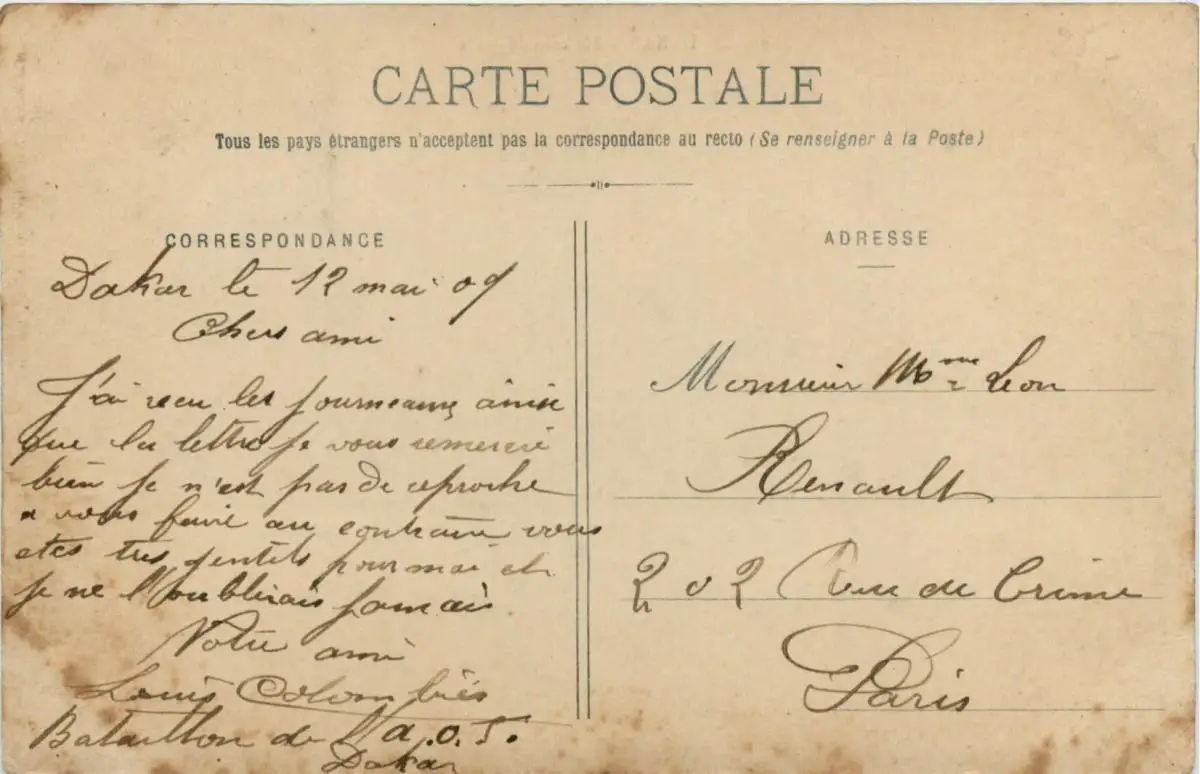 CARTE POSTALE
Tous les pays étrangers n'acceptent pas la correspondance au recto (Se renseigner à la Poste)
CORRESPONDANCE
Dakar le 12 mai 09
Chers ami
J'ai recu les journeaux ainsi
que la lettre je vous remercie
bien je n'est pas de reproche
a vous faire au contraire vous
etes tres gentils pour moi et
je ne l'oublirais jamais
Votre ami
Louis Colombiès
Bataillon de l'a.o.F.
Dakar
ADRESSE
Monsieur Mme Leon
Renault
202 Rue de Crimé
Paris